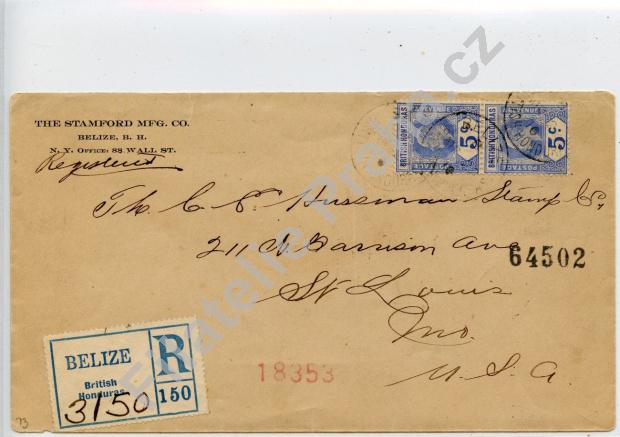 THE STAMFORD MFG. CO.
BELIZE, B. H.
N. Y. OFFICE: 88 WALL ST.
Registered
BRITISH HONDURAS
POSTAGE
5c
BRITISH HONDURAS
POSTAGE
5c
The C. P. Hussman Stamp Co,
211 N. Garrison Ave
64502
St Louis
Mo.
U. S. A.
BELIZE
British
Honduras
R
3150
150
18353
73
Filatelie Praha.cz